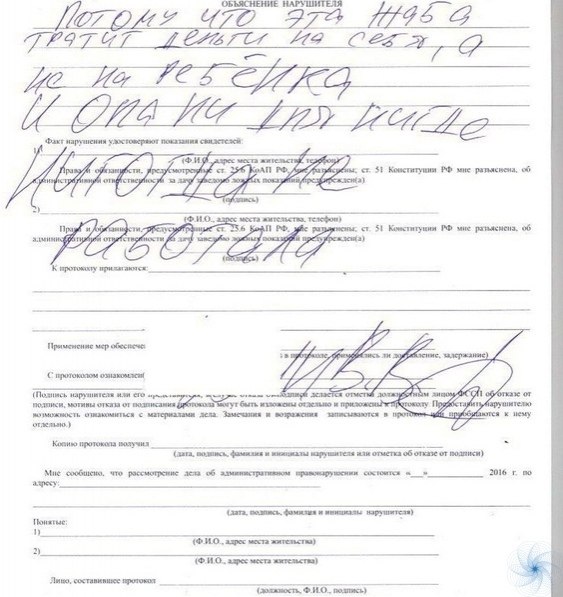 ОБЪЯСНЕНИЕ НАРУШИТЕЛЯ
Потому что эта жаба
тратит деньги на себя, а
не на ребёнка
и она ни дня нигде
Факт нарушения удостоверяют показания свидетелей:
1)
(Ф.И.О., адрес места жительства, телефон)
Права и обязанности, предусмотренные ст. 25.6 КоАП РФ, мне разъяснены; ст. 51 Конституции РФ мне разъяснена, об
административной ответственности за дачу заведомо ложных показаний предупрежден(а)
(подпись)
2)
(Ф.И.О., адрес места жительства, телефон)
Права и обязанности, предусмотренные ст. 25.6 КоАП РФ, мне разъяснены; ст. 51 Конституции РФ мне разъяснена, об
административной ответственности за дачу заведомо ложных показаний предупрежден(а)
работала
(подпись)
К протоколу прилагаются:
Применение мер обеспече
в протоколе, применялись ли доставление, задержание)
С протоколом ознакомлен
(Подпись нарушителя или его делается отметка должностным лицом ФССП об отказе от
подписи, мотивы отказа от подписания протокола могут быть изложены отдельно и приложены к протоколу. Предоставить нарушителю
возможность ознакомиться с материалами дела. Замечания и возражения записываются в протокол или приобщаются к нему
отдельно.)
Копию протокола получил
(дата, подпись, фамилия и инициалы нарушителя или отметка об отказе от подписи)
Мне сообщено, что рассмотрение дела об административном правонарушении состоится «__»________ 2016 г. по
адресу:
(дата, подпись, фамилия и инициалы нарушителя)
Понятые:
1)
(Ф.И.О., адрес места жительства)
2)
(Ф.И.О., адрес места жительства)
Лицо, составившее протокол
(должность, Ф.И.О., подпись)